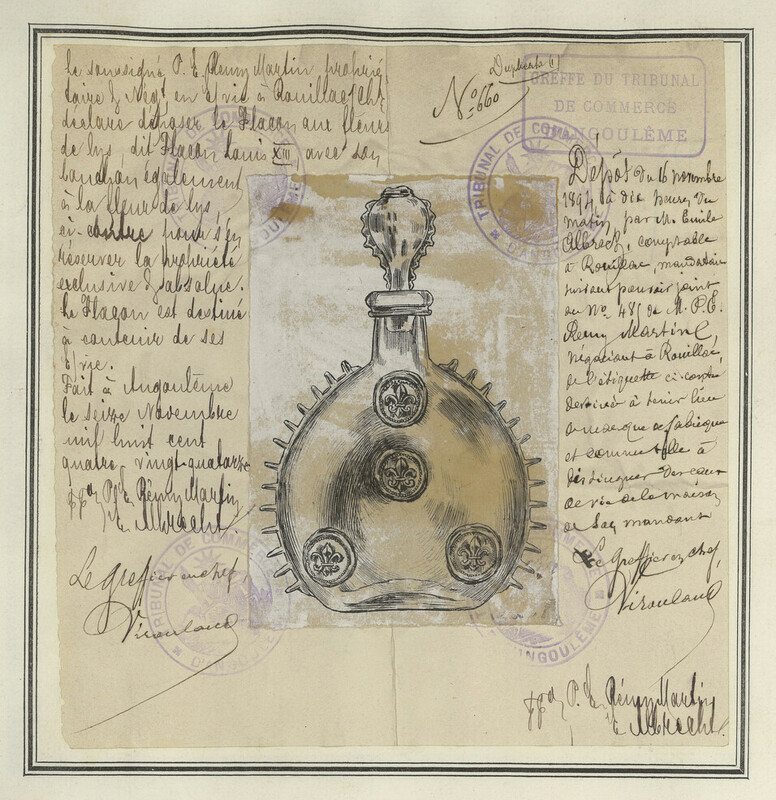 Le soussigné P. E. Remy Martin proprié
taire & Négt en d/vie à Rouillac, Chte
déclare déposer le Flacon aux fleurs
de lys, dit Flacon Louis XIII, avec son
bouchon également
à la fleur de lys,
ci-contre pour s'en
réserver la propriété
exclusive & absolue.
Le Flacon est destiné
à contenir de ses
d/vie.
Fait à Angoulême
le seize Novembre
mil huit cent
quatre vingt quatorze
P. E. Rémy Martin
E. Albrecht
Le Greffier en chef,
Viroulaud
Duplicata
No 660
GREFFE DU TRIBUNAL
DE COMMERCE
D'ANGOULÊME
TRIBUNAL DE COMMERCE
D'ANGOULÊME
Dépôt du 16 novembre
1894 à dix heures du
matin, par M. Emile
Albrecht, comptable
à Rouillac, mandataire
suivant pouvoir joint
au No 485 de M. P. E.
Remy Martin,
négociant à Rouillac,
de l'étiquette ci-contre
destinée à tenir lieu
de marque de fabrique
et comme telle à
distinguer des eaux
de vie de la maison
de son mandant
Le Greffier en chef,
Viroulaud
P. E. Rémy Martin
E. Albrecht
TRIBUNAL DE COMMERCE
D'ANGOULÊME
ANGOULÊME